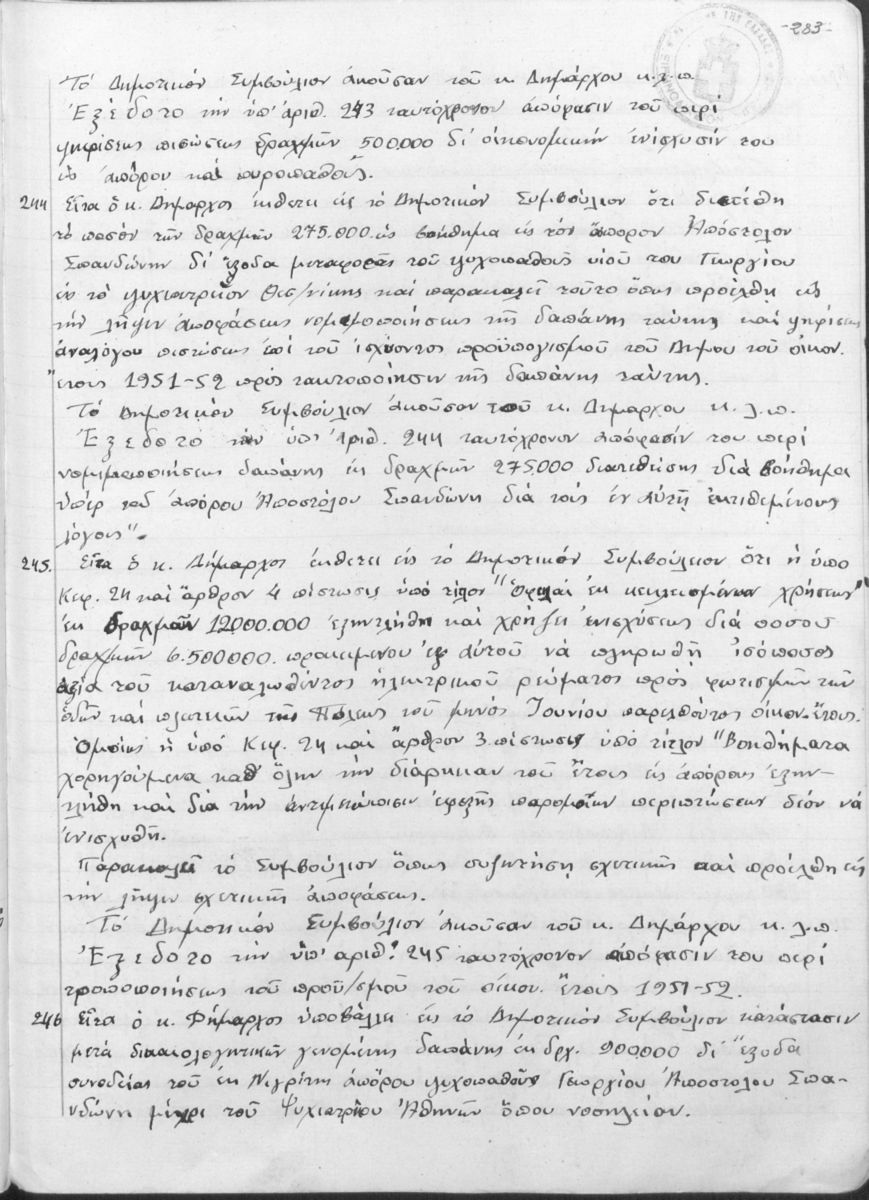 -283-
Τό Δημοτικόν Συμβούλιον ἀκοῦσαν τοῦ κ. Δημάρχου κ.λ.π.
Ἐξέδοτο τήν ὑπ' ἀριθ. 243 ταυτόχρονον ἀπόφασιν τοῦ περί
ψηφίσεως πιστώσεως δραχμῶν 500.000 δι' οἰκονομικήν ἐνίσχυσίν του
ὡς ἀπόρου καί πυροπαθοῦς.
244 Εἶτα ὁ κ. Δήμαρχος ἐκθέτει εἰς τό Δημοτικόν Συμβούλιον ὅτι διετέθη
τό ποσόν τῶν δραχμῶν 275.000 ὡς βοήθημα εἰς τόν ἄπορον Ἀπόστολον
Σπανδώνην δι' ἔξοδα μεταφορᾶς τοῦ ψυχοπαθοῦς υἱοῦ του Γεωργίου
ἐν τό ψυχιατρεῖον Θεσ/νίκης καί παρακαλεῖ τοῦτο ὅπως προέλθῃ εἰς
τήν λῆψιν ἀποφάσεως νομιμοποιήσεως τῆς δαπάνης ταύτης καί ψηφίσεως
ἀναλόγου πιστώσεως ἐπί τοῦ ἰσχύοντος προϋπολογισμοῦ τοῦ Δήμου τοῦ οἰκον.
ἔτους 1951-52 πρός τακτοποίησιν τῆς δαπάνης ταύτης.
Τό Δημοτικόν Συμβούλιον ἀκοῦσαν τοῦ κ. Δημάρχου κ.λ.π.
Ἐξέδοτο τήν ὑπ' ἀριθ. 244 ταυτόχρονον ἀπόφασίν του περί
νομιμοποιήσεως δαπάνης ἐκ δραχμῶν 275.000 διατεθείσης διά βοήθημα
ὑπέρ τοῦ ἀπόρου Ἀποστόλου Σπανδώνη διά τούς ἐν αὐτῇ ἐκτιθεμένους
λόγους".
245. Εἶτα ὁ κ. Δήμαρχος ἐκθέτει εἰς τό Δημοτικόν Συμβούλειον ὅτι ἡ ὑπό
Κεφ. 24 καί ἄρθρον 4 πίστωσις ὑπό τίτλον "Ὀφειλαί ἐκ κεκλεισμένων χρήσεων"
ἐκ δραχμῶν 12000.000 ἐξηντλήθη καί χρήζει ἐνισχύσεως διά ποσοῦ
δραχμῶν 6.500000. προκειμένου ἐξ αὐτοῦ νά πληρωθῇ ἰσόποσος
ἀξία τοῦ καταναλωθέντος ἠλεκτρικοῦ ρεύματος πρός φωτισμόν τῶν
ὁδῶν καί πλατειῶν τῆς Πόλεως τοῦ μηνός Ἰουνίου παρελθόντος οἰκον. ἔτους.
Ὁμοίως ἡ ὑπό Κεφ. 24 καί ἄρθρον 3 πίστωσις ὑπό τίτλον "Βοηθήματα
χορηγούμενα καθ' ὅλην τήν διάρκειαν τοῦ ἔτους εἰς ἀπόρους ἐξην-
τλήθη καί διά τήν ἀντιμετώπισιν ἐφεξῆς παρομοίων περιπτώσεων δέον νά
ἐνισχυθῇ.
Παρακαλεῖ τό Συμβούλιον ὅπως συζητήσῃ σχετικῶς καί προέλθῃ εἰς
τήν λῆψιν σχετικῆς ἀποφάσεως.
Τό Δημοτικόν Συμβούλιον ἀκοῦσαν τοῦ κ. Δημάρχου κ.λ.π.
Ἐξέδοτο τήν ὑπ' ἀριθ. 245 ταυτόχρονον ἀπόφασιν του περί
τροποποιήσεως τοῦ προϋ/σμοῦ τοῦ οἰκον. ἔτους 1951-52.
246 Εἶτα ὁ κ. Δήμαρχος ὑποβάλλει εἰς τό Δημοτικόν Συμβούλιον κατάστασιν
μετά δικαιολογητικῶν γενομένης δαπάνης ἐκ δρχ. 900.000 δι' ἔξοδα
συνοδείας τοῦ ἐκ Νιγρίτης ἀπόρου ψυχοπαθοῦς Γεωργίου Ἀποστόλου Σπα-
νδώνη μέχρι τοῦ Ψυχιατρείου Ἀθηνῶν ὅπου νοσηλεῖον.